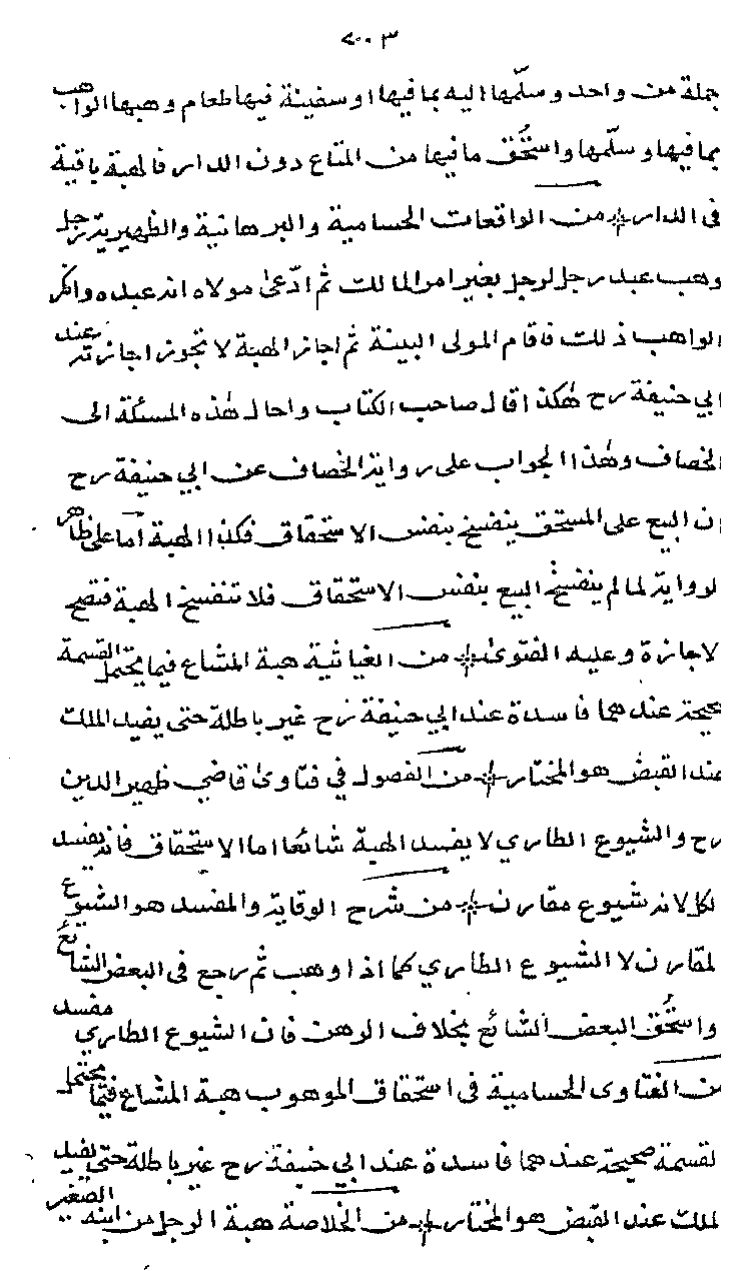 ٧٠٠٣
جملة من واحد وسلّمها اليه بما فيها او سفينة فيها طعام وهبها الواهب
بما فيها وسلّمها واستُحق ما فيها من المتاع دون الدار فالهبة باقية
فى الدار من الواقعات الحسامية والبرهانية والظهيرية رجل
وهب عبد رجل لرجل بغير امر المالك ثم ادّعىٰ مولاه انه عبده وانكر
الواهب ذلك فاقام المولى البينة ثم اجاز الهبة لا تجوز اجازته عند
ابي حنيفة رح هٰكذا قال صاحب الكتاب واحال هٰذه المسئلة الى
الخصاف وهٰذا الجواب على رواية الخصاف عن ابي حنيفة رح
ان البيع على المستحق ينفسخ بنفس الاستحقاق فكذا الهبة اما على ظاهر
لرواية لما لم ينفسخ البيع بنفس الاستحقاق فلا تنفسخ الهبة فتصح
لاجازة وعليه الفتوىٰ من الغياثية هبة المشاع فيما يحتمل القسمة
صحيحة عندهما فاسدة عند ابي حنيفة رح غير باطلة حتى يفيد الملك
عند القبض هو المختار من الفصول في فتاوىٰ قاضي ظهير الدين
رح والشيوع الطاري لا يفسد الهبة شائعا اما الاستحقاق فانه يفسد
لكل لانه شيوع مقارن من شرح الوقاية والمفسد هو الشيوع
لمقارن لا الشيوع الطاري كما اذا وهب ثم رجع فى البعض الشائع
واستُحق البعض الشائع بخلاف الرهن فان الشيوع الطاري مفسد
من الفتاوى الحسامية فى استحقاق الموهوب هبة المشاع فيما يحتمل
لقسمة صحيحة عندهما فاسدة عند ابي حنيفة رح غير باطلة حتى يفيد
لملك عند القبض هو المختار من الخلاصة هبة الرجل من ابنه الصغير